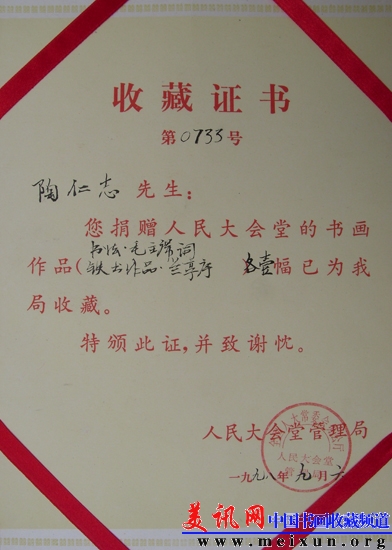 收藏证书
第0733号
陶仁志 先生：
您捐赠人民大会堂的书画
书法·毛主席词
作品(铁书作品·兰亭序 各壹幅已为我
局收藏。
特颁此证,并致谢忱。
人民大会堂管理局
人民大会堂
一九九八年九月六
美讯网 中国书画收藏频道
www.meixun.org